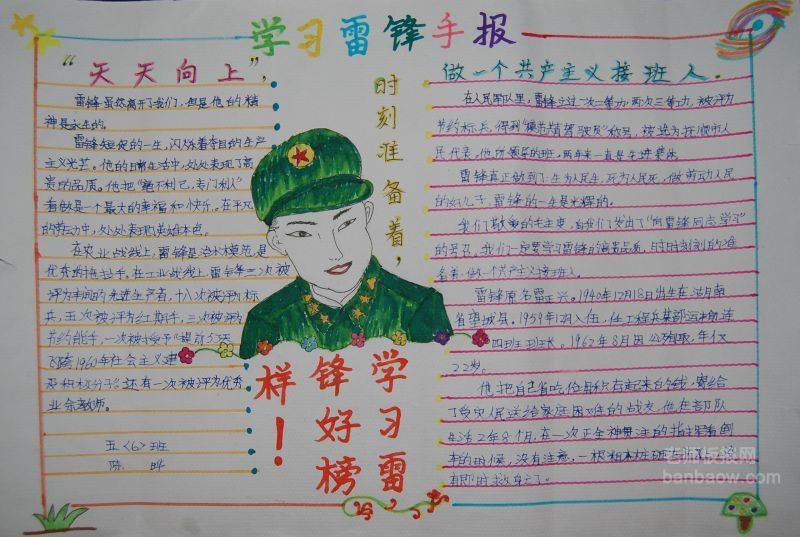 学习雷锋手报
“天天向上”，
雷锋虽然离开了我们，但是他的精
神是永生的。
雷锋短促的一生，闪烁着夺目的共产
主义光芒。他的日常生活中，处处表现了高
贵的品质。他把“毫不利己，专门利人”
看做是一个最大的幸福和快乐。在平凡
的劳动中，处处表现英雄本色。
在农业战线上，雷锋是治水模范，是
优秀的拖拉手，在工业战线上，雷锋三次被
评为车间的先进生产者，十八次被评为标
兵，五次被评为红旗手，三次被评为
节约能手，一次被
1960年社会主义建
设积极分子，还有一次被评为优秀
业余教师。
五〈6〉班
陈
时刻准备着，
学习雷
锋好榜
样！
做一个共产主义接班人．
在人民军队里，雷锋立过一次二等功，两次三等功，被评为
节约标兵，得到“模范精驾驶员”称号，被选为抚顺市人
民代表。他所领导的班，两年来一直是先进集体。
雷锋真正做到了：生为人民生，死为人民死，做劳动人民
的好儿子，雷锋的一生是光辉的。
我们敬爱的毛主席，向我们发出了“向雷锋同志学习”
的号召，我们一定要学习雷锋的高贵品质，时时刻刻的准
备着做一个共产主义接班人。
雷锋原名雷正兴。1940年12月18日出生在湖南
省望城县。1959年12月入伍，任工程兵某部运输连
四班班长。1962年8月因公殉职，年仅
22岁。
他把自己省吃俭用积存起来的钱，寄给
了受灾人民送给家庭困难的战友，他在部队
生活2年8个月，在一次正全神贯注的指挥着倒
车的时候，没有注意，一根
老师板报网
banbaow.com